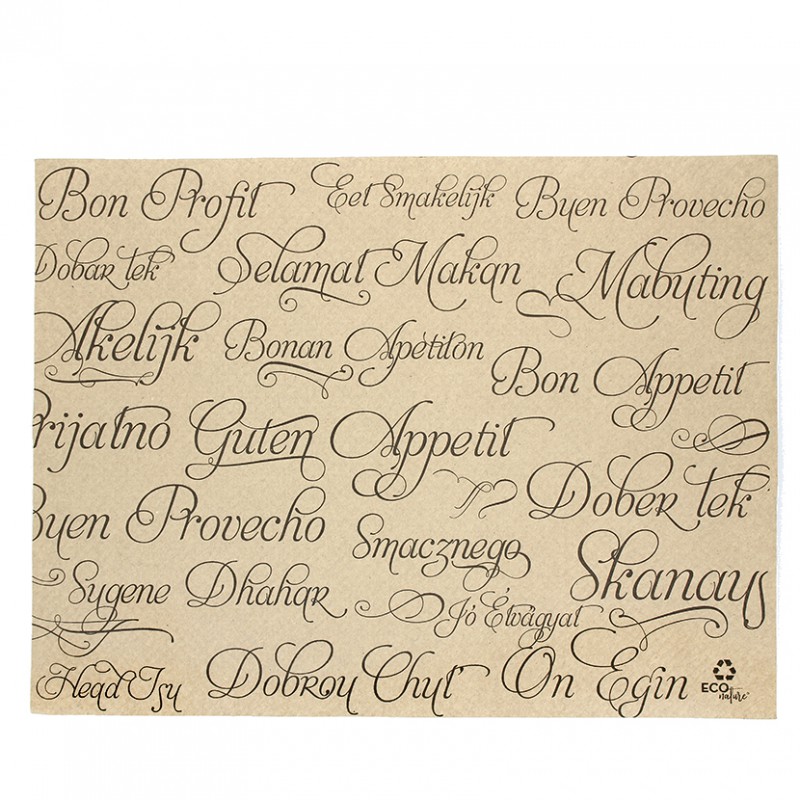 Bon Profit Eet Smakelijk Buen Provecho
Dobar tek Selamat Makan Mabuting
Akelijk Bonan Apétiton
Bon Appetit
rijatno Guten Appetit
Dober tek
Buen Provecho
Smacznego
Skanaus
Sygene Dhahar
Jó Étvágyat
Head Isu Dobrou Chut' On Egin
ECO
nature